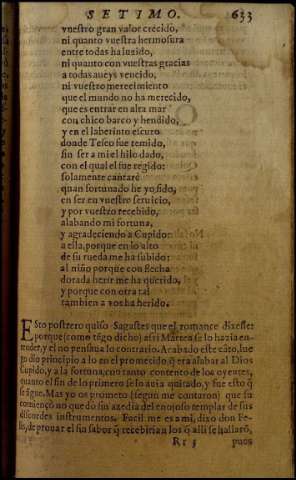 SETIMO. 633
vuestro gran valor crecido,
ni quanto vuestra hermosura
entre todas ha luzido,
ni quanto con vuestras gracias
a todas aueys vencido,
ni vuestro merecimiento
que el mundo no ha merecido,
que es entrar en alta mar
con chico barco y hendido,
y en el laberinto escuro
donde Teseo fue temido,
sin ser a mi el hilo dado,
con el qual el fue regido:
solamente cantarè
quan fortunado he yo sido,
en ser en vuestro seruicio,
y por vuestro recebido,
alabando mi fortuna,
y agradeciendo a Cupido:
a ella, porque en lo alto
de su rueda me ha subido:
al niño porque con flecha
dorada herirme ha querido,
y porque con otra tal
tambien a vos ha herido.
Esto postrero quiso Sagastes que el romance dixesse:
porque (como tẽgo dicho) assi Martea se lo hazia en-
tender, y el no pensaua lo contrario. Acabado este cãto, lue
go dio principio a lo en el prometido, q̃ era alabar al Dios
Cupido, y a la fortuna, con tanto contento de los oyentes,
quanto el fin de lo primero se lo auia quitado, y fue esto q̃
se sigue. Mas yo os prometo (segun me contaron) que su
començo no quedò sus azedia del enojoso templar de sus
discordes instrumentos. Facil me es a mi, dixo don Fe-
lis, de prouar el sin sabor q̃ recebirian los q̃ alli se hallarõ,
Rr 5 pues